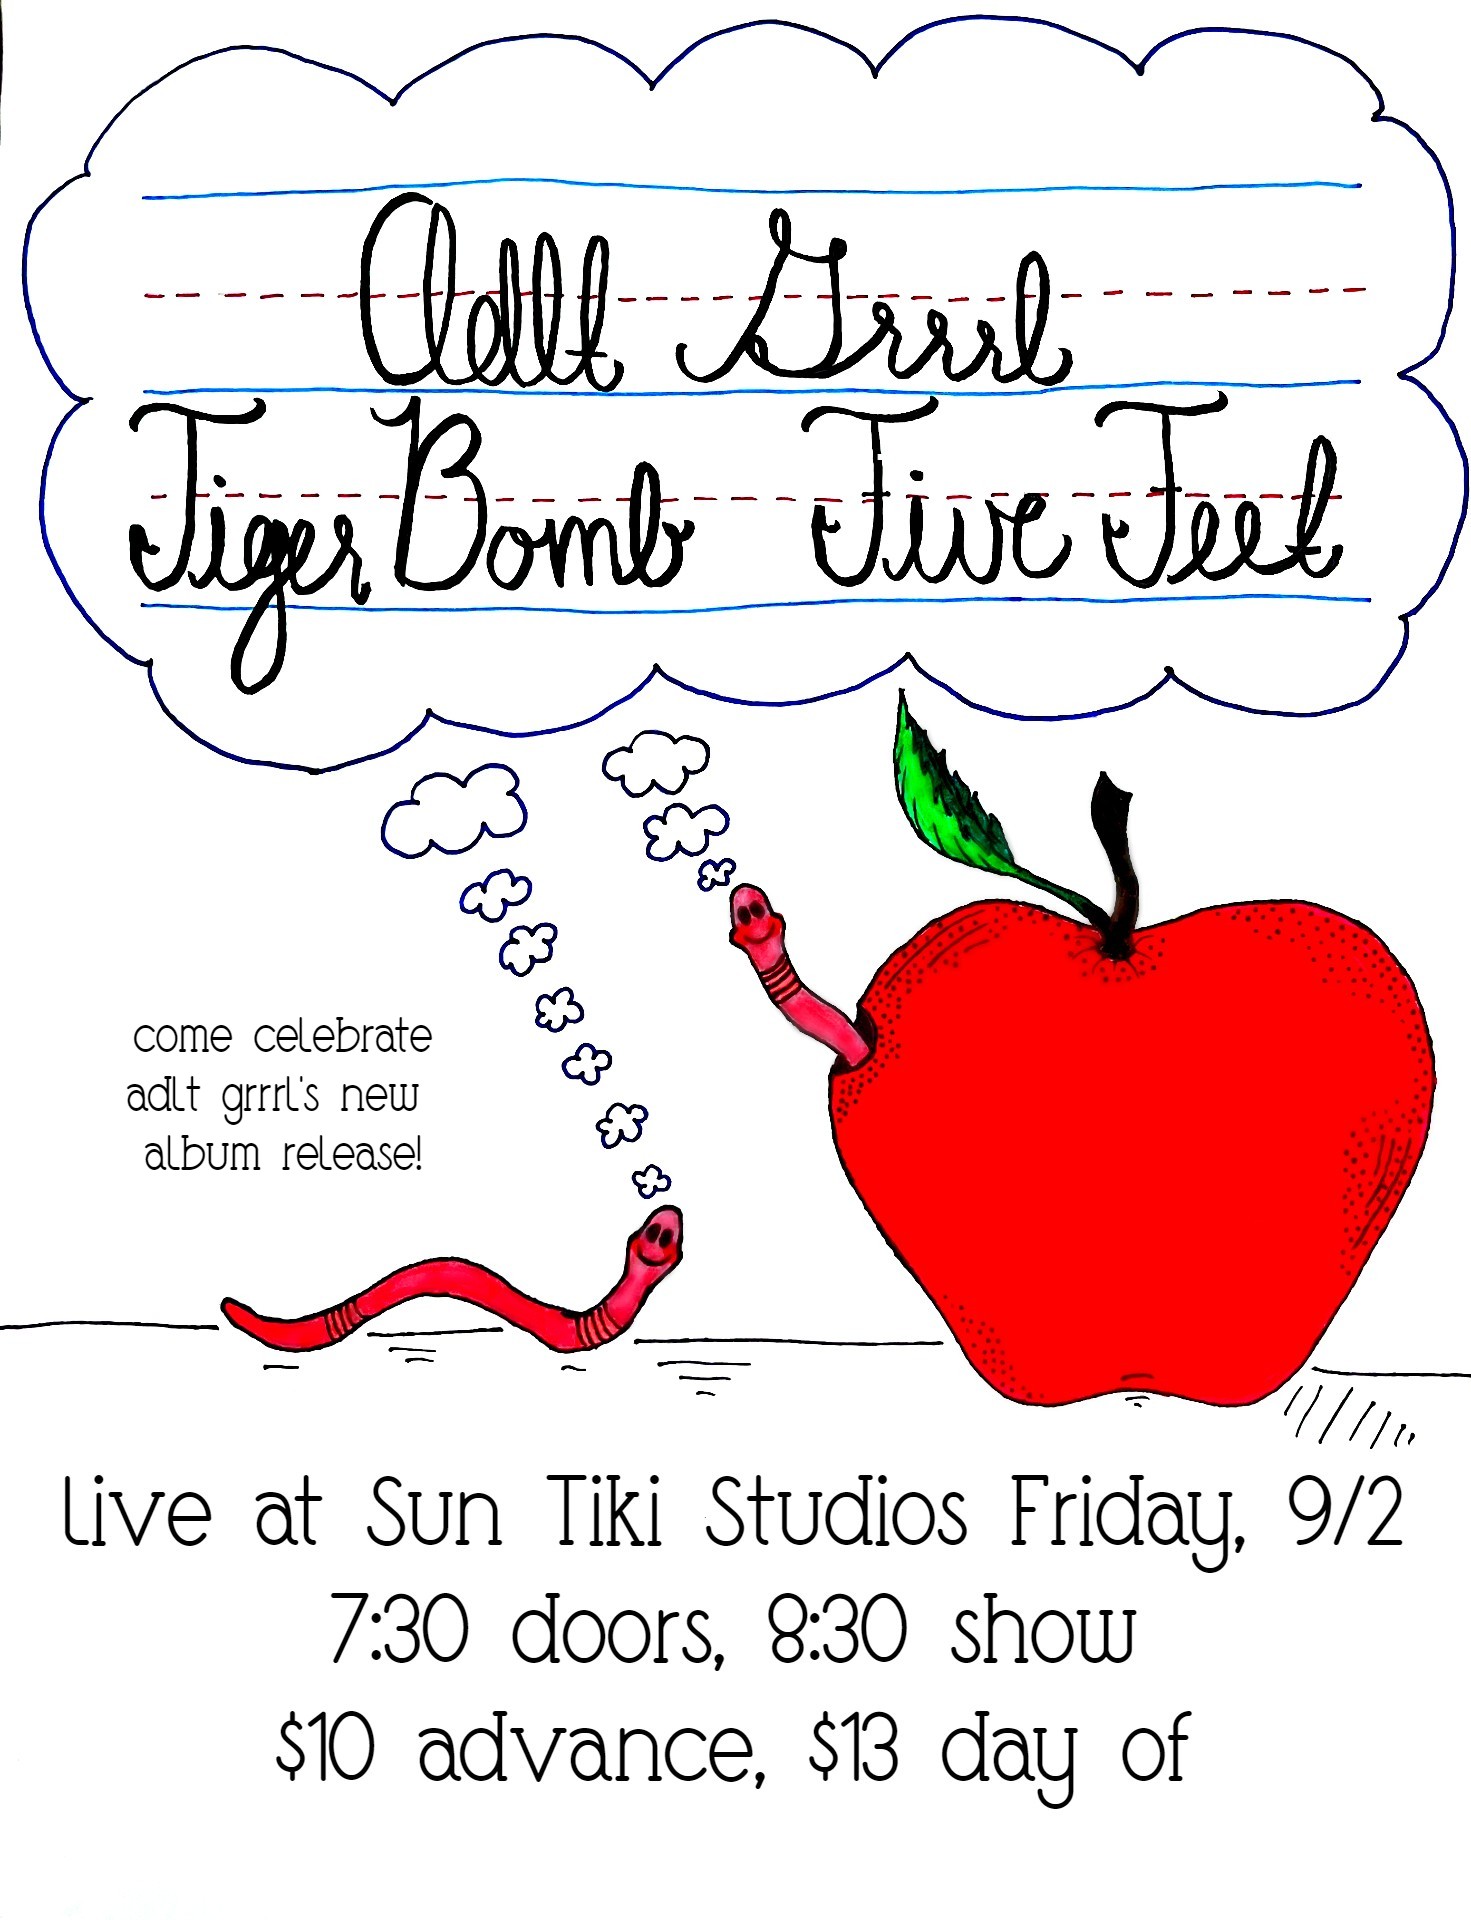 Adlt Grrrl
TigerBomb Five Feet
come celebrate
adlt grrrl's new
album release!
Live at Sun Tiki Studios Friday, 9/2
7:30 doors, 8:30 show
$10 advance, $13 day of